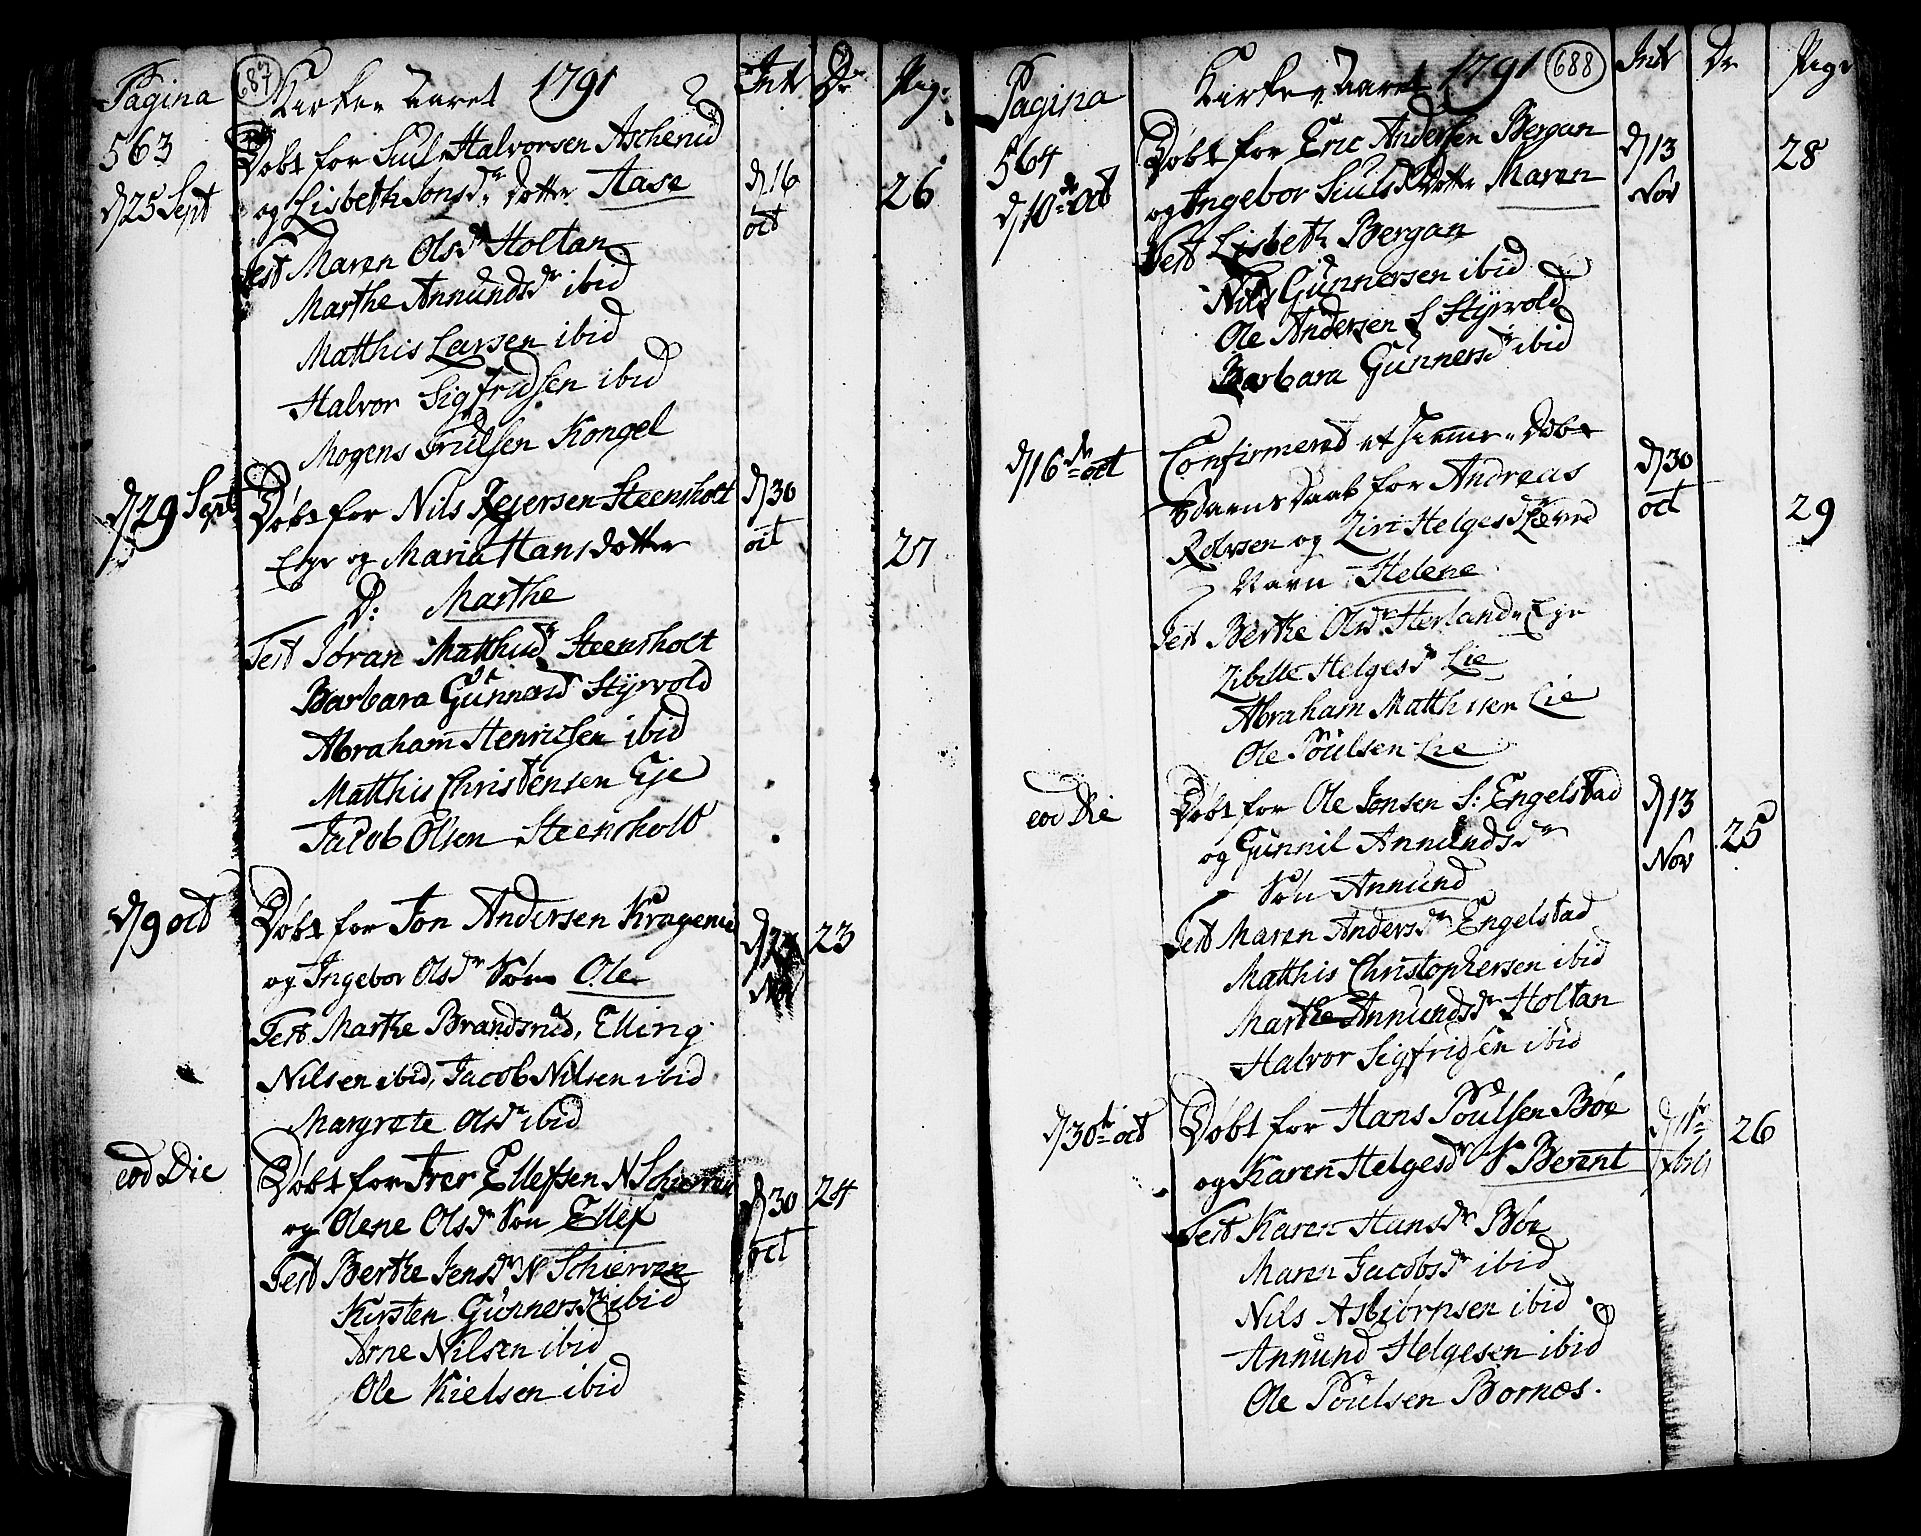 Pagina
563
687
Kirke-Aaret 1791
Int
Dr
Pig:
d 25 Sept
Døbt for Siul Halvorsen Ascherud
og Lisbeth Jonsdr. Dotter Aase
d 16 oct
26
Test Maren Olsdr Holtan
Marthe Annundsdr ibid
Matthis Larsen ibid
Halvor Sigfridsen ibid
Mogens Trulsen Kongel
d 29 Sept
Døbt for Nils Rejersen Steensholt
Eye og Maria Hansdotter
D: Marthe
d 30 oct
27
Test Joran Matthisdr Steensholt
Barbara Gunnersdr Styrvold
Abraham Henricsen ibid
Matthis Christensen Eje
Jacob Olsen Steensholt
d 9 oct
Døbt for Jon Andersen Kragerud
og Ingebor Olsdr Søn Ole
Nov
23
Test Marthe Brandsrud, Elling
Nilsen ibid, Jacob Nilsen ibid
Margrete Olsdr ibid
eod Die
Døbt for Iver Ellefsen N Schierven
og Olene Olsdr Søn Ellef
d 30 oct
24
Test Berthe Jensdr N Schierven
Kirsten Gunnersdr ibid
Arne Nilsen ibid
Ole Kielsen ibid
Pagina
564
Kirke-Aaret 1791
688
Int
Dr
Pige
d 10de Oct
Døbt for Eric Andersen Bergan
og Ingebor Siulsdr Dotter Maren
d 13 Nov
28
Test Lisbeth Bergan
Nils Gunnersen ibid
Ole Andersen S Styrvold
Barbara Gunnersdr ibid
d 16de oct
Confirmered et hiemme-Døbt
Barns Daab for Andreas
Rolvsen og Ziri Helgesdr
Navn Helene
d 30 oct
29
Test Berthe Olsdr Herland Eye
Zibille Helgesdr Lie
Abraham Matthisen Lie
Ole Poulsen Lie
eod Die
Døbt for Ole Jonsen S: Engelstad
og Gunnil Annundsdr
Søn Annund
d 13 Nov
25
Test Maren Andersdr Engelstad
Matthis Christophersen ibid
Marthe Annundsdr Holtan
Halvor Sigfridsen ibid
d 30te oct
Døbt for Hans Poulsen Bøe
og Karen Helgesdr S Berent
26
Test Karen Hansdr Bøe
Maren Jacobsdr ibid
Nils Asbiørnsen ibid.
Annund Helgesen ibid
Ole Poulsen Bornes.